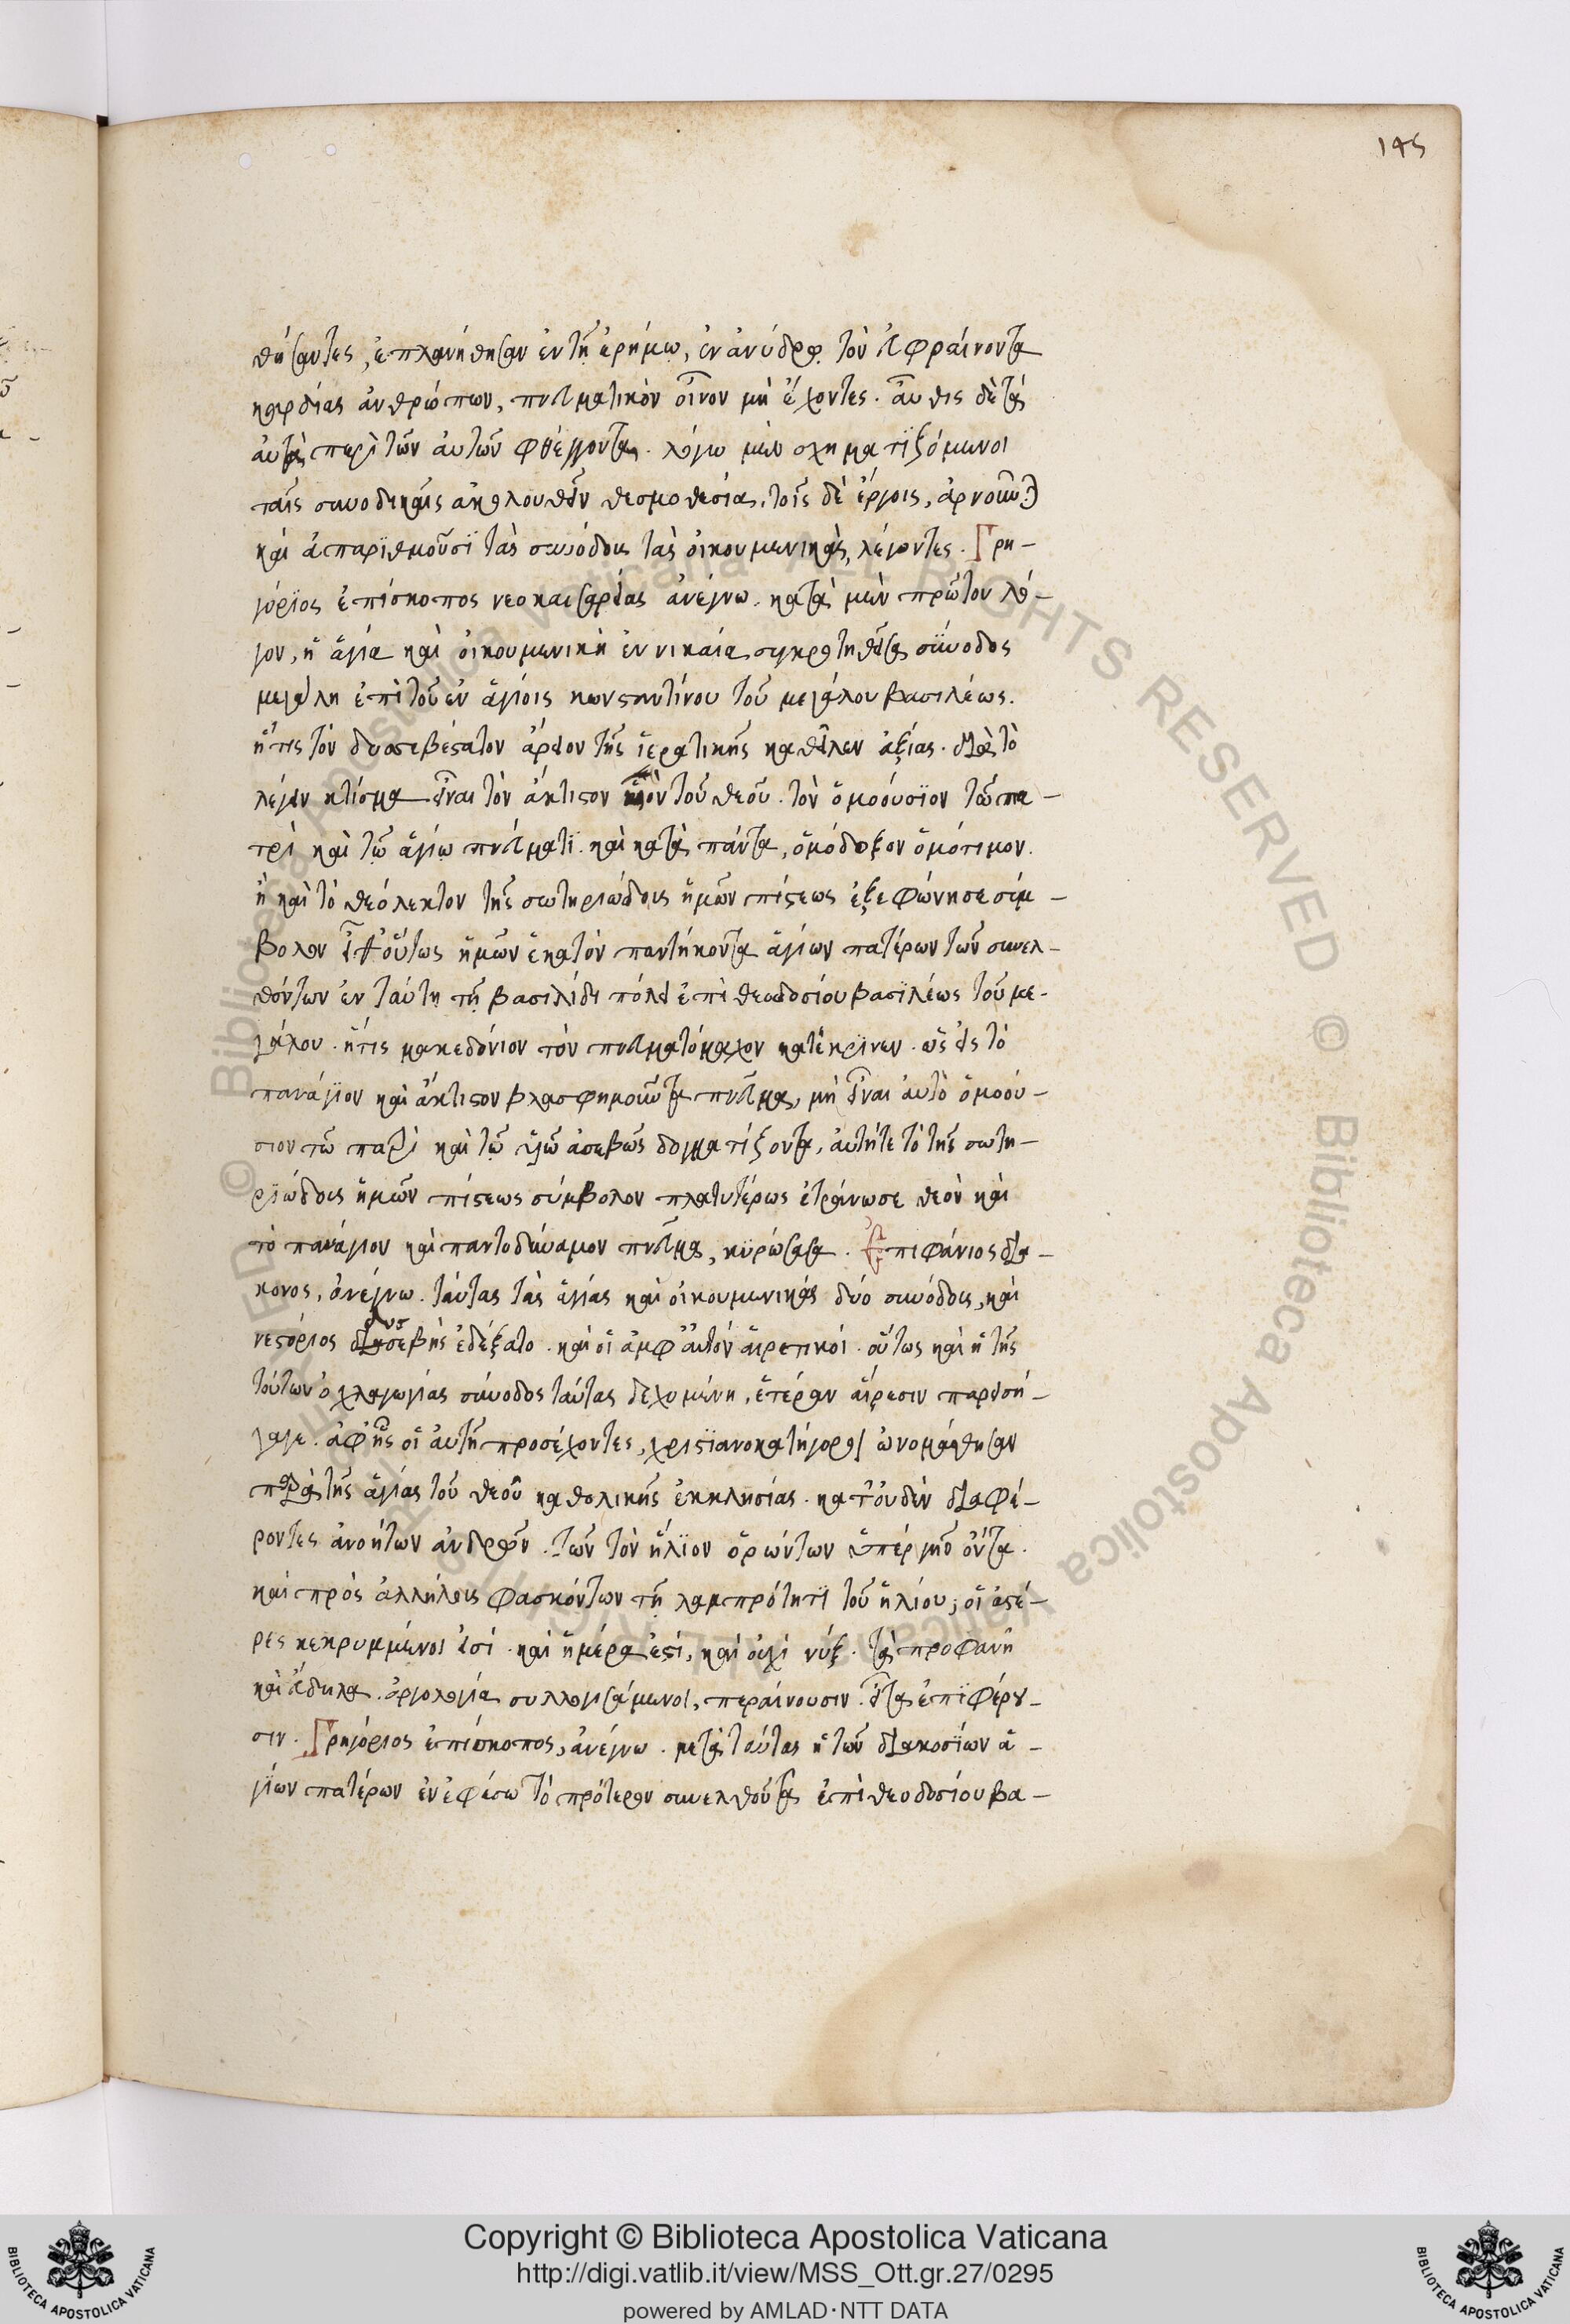 145
θήσαντες, ἐπλανήθησαν ἐν τῆ ἐρήμω, ἐν ἀνύδρῳ. τὸν εὐφραίνοντα
καρδίας ἀνθρώπων, πνευματικὸν οἶνον μὴ ἔχοντες. αὖθις δὲ τὰ
αὐτὰ περὶ τῶν αὐτῶν φθέγγονται. λόγω μὲν σχηματϊζόμενοι
ταῖς συνοδικαῖς ἀκολουθεῖν θεσμοθεσίαις, τοῖς δὲ ἔργοις, ἀρνούμενοι
καὶ ἀπαρϊθμοῦσϊ τὰς συνόδους τὰς οἰκουμενικὰς, λέγοντες. Γρη-
γόρϊος ἐπίσκοπος νεοκαισαρείας ἀνέγνω. κατὰ μὲν πρῶτον λό-
γον, ἡ ἁγία καὶ οἰκουμενικὴ ἐν νικαία συγκροτηθεῖσα σύνοδος
μεγάλη ἐπὶ τοῦ ἐν ἁγίοις κωνσταντίνου τοῦ μεγάλου βασιλέως.
ἥτις τὸν δυσσεβέστατον ἄρειον τῆς ἱερατικῆς καθεῖλεν ἀξίας. διὰ τὸ
λέγειν κτίσμα εἶναι τὸν ἄκτιστον υἱὸν τοῦ θεοῦ. τὸν ὁμοούσϊον τῶ πα-
τρὶ καὶ τῶ ἁγίω πνεύματϊ. καὶ κατὰ πάντα, ὁμόδοξον ὁμότιμον.
ἣ καὶ τὸ θεόλεκτον τῆς σωτηριώδους ἡμῶν πίστεως ἐξεφώνησε σύμ-
βολον εἶθ' οὕτως ἡμῶν ἑκατὸν πεντήκοντα ἁγίων πατέρων τῶν συνελ-
θόντων ἐν ταύτη τῆ βασιλίδι πόλει ἐπὶ θεοδοσίου βασϊλέως τοῦ με-
γάλου. ἥτις μακεδόνιον τὸν πνευματόμαχον κατέκρϊνεν. ὡς εἰς τὸ
πανάγϊον καὶ ἄκτιστον βλασφημοῦντα πνεῦμα, μὴ εἶναι αὐτὸ ὁμοού-
σιον τῶ πατρὶ καὶ τῶ υἱῶ ἀσεβῶς δογματίζοντα, αὐτή τε τὸ τῆς σωτη-
ρϊώδους ἡμῶν πίστεως σύμβολον πλατυτέρως ἐτράνωσε θεὸν καὶ
τὸ πανάγιον καὶ παντοδύναμον πνεῦμα, κυρώσασα. Ἐπιφάνιος δια-
κονος, ἀνέγνω. ταύτας τὰς ἁγίας καὶ οἰκουμενικὰς δύο συνόδους, καὶ
νεστόριος δυσσεβὴς ἐδέξατο. καὶ οἱ ἀμφ' αὐτὸν αἱρετικοί. οὕτως καὶ ἡ τῆς
τούτων ὀχλαγωγίας σύνοδος ταύτας δεχομένη, ἑτέραν αἵρεσιν παρεισή-
γαγε. ἀφ' ἧς οἱ αὐτῆ προσέχοντες, χριστϊανοκατήγοροι ὠνομάσθησαν
παρὰ τῆς ἁγίας τοῦ θεοῦ καθολικῆς ἐκκλησίας. κατ' οὐδὲν διαφέ-
ροντες ἀνοήτων ἀνδρῶν. τῶν τὸν ἥλϊον ὁρώντων ὑπὲρ γῆς ὄντα.
καὶ πρὸς ἀλλήλους φασκόντων τῆ λαμπρότητϊ τοῦ ἡλίου, οἱ ἀστέ-
ρες κεκρυμμένοι εἰσί. καὶ ἡμέρα ἐστὶ, καὶ οὐχὶ νύξ. τὰ προφανῆ
καὶ ἄδηλα. ἀργολογία συλλογισάμενοι, περαίνουσιν. εἶτα ἐπϊφέρου-
σιν. Γρηγόριος ἐπίσκοπος, ἀνέγνω. μετὰ ταύτας ἡ τῶν διακοσϊων ἁ-
γίων πατέρων ἐν ἐφέσω τὸ πρότερον συνελθοῦσα ἐπὶ θεοδοσίου βα-
Copyright © Biblioteca Apostolica Vaticana
http://digi.vatlib.it/view/MSS_Ott.gr.27/0295
powered by AMLAD·NTT DATA